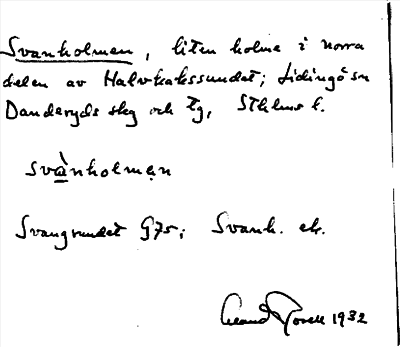 Svanholmen, liten holme i norra
delen av Halvkakssundet; Lidingö sn
Danderyds skg och tg, Sthlms l.
Svànholmen
Svangrundet G75; Svanh. ek.
1932